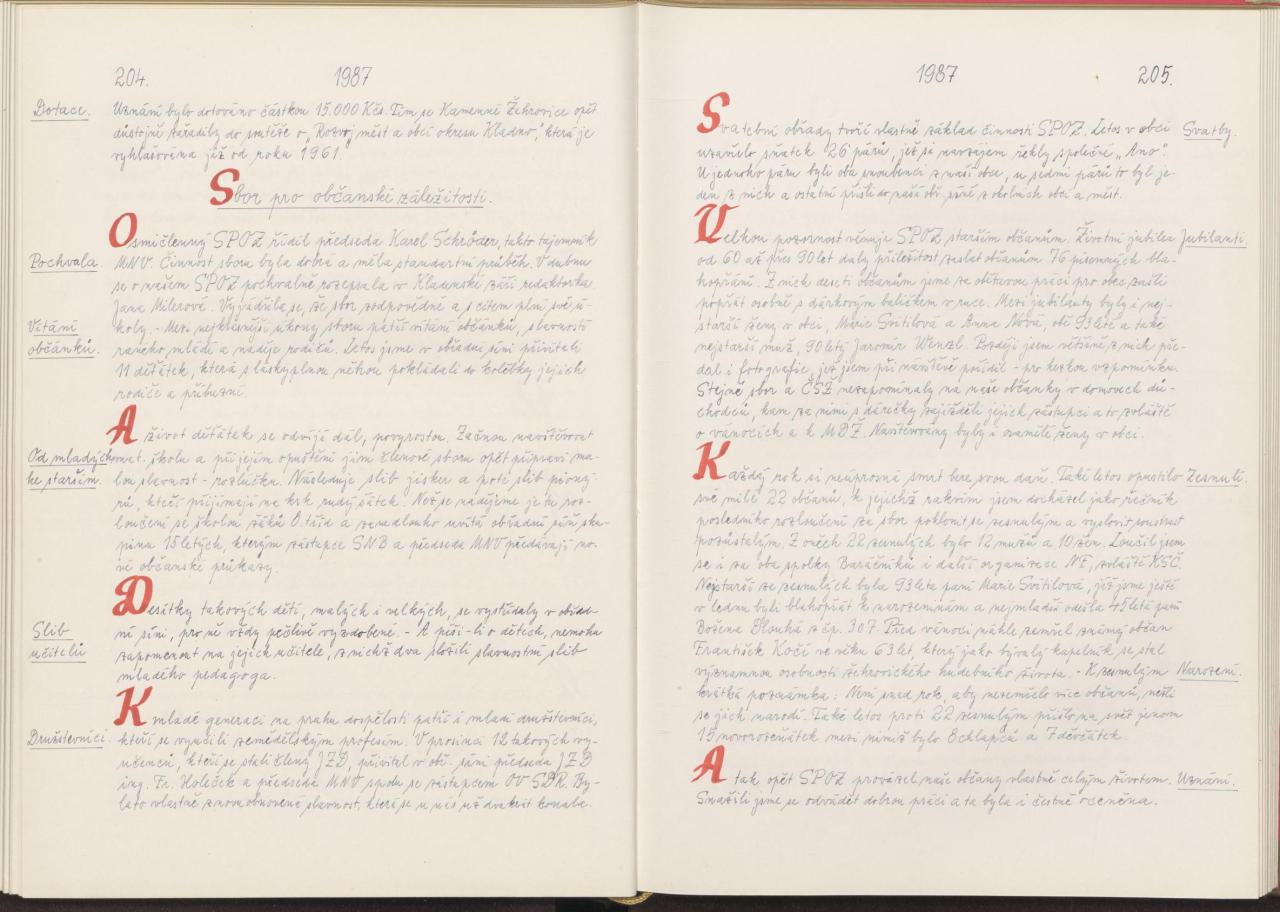 204. 1987
Dotace. Uznání bylo dotováno částkou 15.000 Kčs. Tím se Kamenné Žehrovice opět
důstojně zařadily do soutěže o „Rozvoj měst a obcí okresu Kladno“, která je
vyhlašována již od roku 1961.
Sbor pro občanské záležitosti.
Osmičlenný SPOZ řídil předseda Karel Schröder, takto tajemník
Pochvala. MNV. Činnost sboru byla dobrá a měla standartní průběh. V dubnu
se o našem SPOZ pochvalně rozepsala v Kladenské záři redaktorka
Jana Milerová. Vyjádřila se, že sbor zodpovědně a s citem plní své ú-
Vítání koly. - Mezi nejkrásnější úkony sboru patří vítání občánků, slavnosti
občánků. raného mládí a naděje rodičů. Letos jsme v obřadní síni přivítali
11 děťátek, která s láskyplnou něhou pokládali do kolébky jejich
rodiče a příbuzní.
A život děťátek se odvíjí dál, povyrostou. Začnou navštěvovat
Od mladých mat. školu a při jejím opuštění jim členové sboru opět připraví ma-
ke starším. lou slavnost - rozlučku. Následuje slib jisker a poté slib pioný-
rů, kteří přijímají na krk rudý šátek. Než se nadějeme je tu roz-
loučení se školou žáků 8. tříd a zanedlouho uvítá obřadní síň sku-
pinu 15letých, kterým zástupce SNB a předseda MNV předávají no-
vé občanské průkazy.
Desítky takových dětí, malých i velkých, se vystřídaly v obřad-
Slib ní síni, pro ně vždy pečlivě vyzdobené. - A píši-li o dětech, nemohu
učitelů zapomenout na jejich učitele, z nichž dva složili slavnostní slib
mladého pedagoga.
K mladé generaci na prahu dospělosti patří i mladí družstevníci,
Družstevníci. kteří se vyučili zemědělským profesím. V prosinci 12 takových vy-
učenců, kteří se stali členy JZD, přivítal v obř. síni předseda JZD
ing. Fr. Holeček a předseda MNV spolu se zástupcem OV SDR. By-
la to vlastně znovuobnovená slavnost, která se u nás už dvakrát konala.
1987 205.
Svatební obřady tvoří vlastně základ činnosti SPOZ. Letos v obci Svatby.
uzavřelo sňatek 26 párů, jež si navzájem řekly společné „Ano“.
U jednoho páru byli oba snoubenci z naší obce, u sedmi párů to byl je-
den z nich a ostatní přišli do naší obř. síně z okolních obcí a měst.
Velkou pozornost věnuje SPOZ starším občanům. Životní jubilea Jubilanti.
od 60 až přes 90 let daly příležitost zaslat občanům 76 písemných bla-
hopřání. Z nich deseti občanům jsme za obětavou práci pro obec zašli
popřát osobně s dárkovým balíčkem v ruce. Mezi jubilanty byly i nej-
starší ženy v obci, Marie Svitilová a Anna Nová, obě 93leté a také
nejstarší muž, 90letý Jaromír Wenzl. Později jsem většině z nich pře-
dal i fotografie, jež jsem při návštěvě pořídil - pro hezkou vzpomínku.
Stejně sbor a ČSŽ nezapomínaly na naše občánky v domovech dů-
chodců, kam za nimi s dárečky zajížděli jejich zástupci a to zvláště
o vánocích a k MDŽ. Navštěvovány byly i osamělé ženy v obci.
Každý rok si neúprosná smrt bere svou daň. Také letos opustilo Zesnulí.
své milé 22 občanů, k jejichž rakvím jsem docházel jako řečník
posledního rozloučení za sbor poklonit se zesnulým a vyslovit soustrast
pozůstalým. Z oněch 22 zesnulých bylo 12 mužů a 10 žen. Loučil jsem
se i za oba spolky Baráčníků i další organizace NF, zvláště KSČ.
Nejstarší ze zesnulých byla 93letá paní Marie Svitilová, jíž jsme ještě
v lednu byli blahopřát k narozeninám a nejmladší odešla 45letá paní
Božena Dlouhá z čp. 307. Před vánoci náhle zemřel známý občan
František Kočí ve věku 63 let, který jako bývalý kapelník se stal
význačnou osobností žehrovického hudebního života. - K zesnulým Narození.
krátká poznámka: Není snad rok, aby nezemřelo více občanů, nežli
se jich narodí. Také letos proti 22 zesnulým přišlo na svět jenom
15 novorozeňátek mezi nimiž bylo 8 chlapců a 7 děvčátek.
A tak opět SPOZ provázel naše občany vlastně celým životem. Uznání.
Snažili jsme se odvádět dobrou práci a ta byla i čestně oceněna.